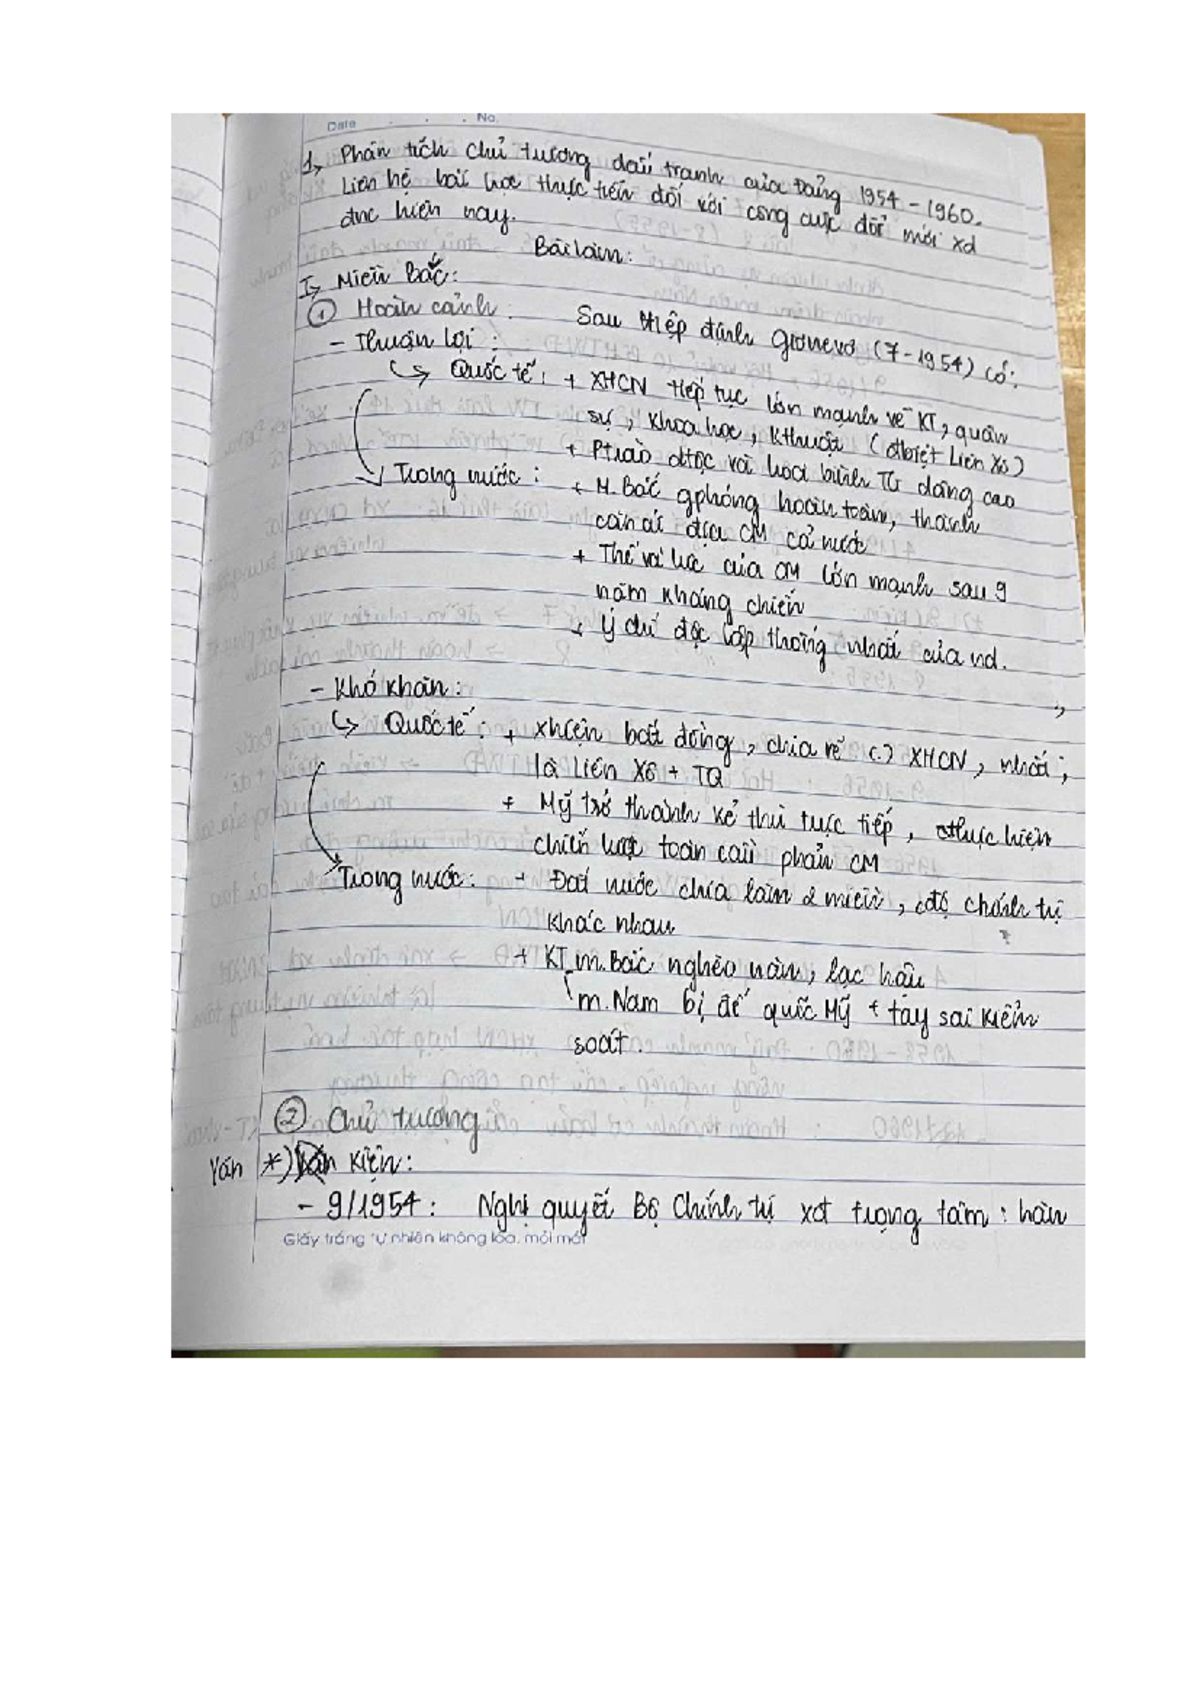 Date . . . No.
1, Phân tích chủ trương đấu tranh của Đảng 1954 - 1960.
Liên hệ bài học thực tiễn đối với công cuộc đổi mới xd
đnc hiện nay.
Bài làm:
I, Miền Bắc:
① Hoàn cảnh: Sau Hiệp định Giơnevơ (7-1954) có:
- Thuận lợi:
↳ Quốc tế: + XHCN tiếp tục lớn mạnh về KT, quân
sự, khoa học, kthuật (đbiệt Liên Xô)
+ Ptrào dtộc và hòa bình TG dâng cao
Trong nước: + M.Bắc gphóng hoàn toàn, thành
căn cứ địa CM cả nước
+ Thế và lực của CM lớn mạnh sau 9
năm kháng chiến
+ Ý chí độc lập thống nhất của nd.
- Khó khăn:
↳ Quốc tế: + xhiện bất đồng, chia rẽ (.) XHCN, nhất,
là Liên Xô + TQ
+ Mỹ trở thành kẻ thù trực tiếp, thực hiện
chiến lược toàn cầu phản CM
Trong nước: + Đất nước chia làm 2 miền, cđộ chính trị
khác nhau
+ KT m.Bắc nghèo nàn, lạc hậu
m.Nam bị đế quốc Mỹ + tay sai kiểm
soát.
② Chủ trương
Văn *) kiện:
- 9/1954: Nghị quyết Bộ Chính trị xđ trọng tâm: hàn
Giấy trắng tự nhiên không lóa, mỏi mắt